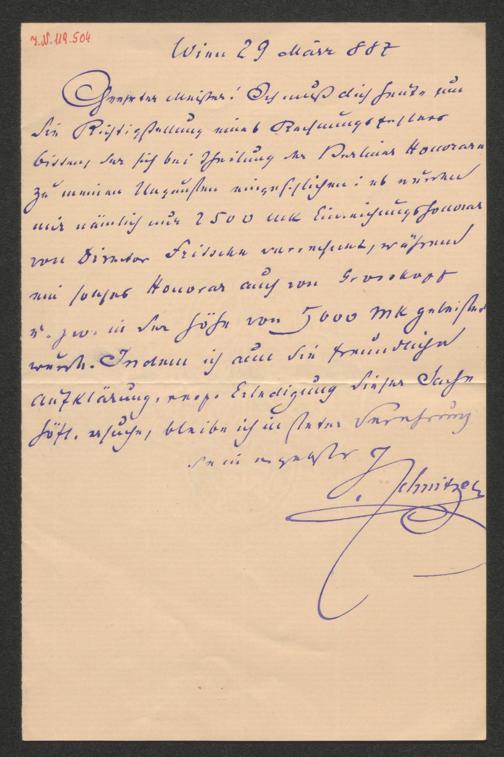 I.N. 119.504
Wien 29 März 887
Geehrter Meister! Ich muß dich heute um
die Richtigstellung eines Rechnungsfehlers
bitten, der sich bei Theilung der Berliner Honorare
zu meinen Ungunsten eingeschlichen: es wurden
mir nämlich nur 2500 Mk Einreichungshonorar
von Director Fritzsche verrechnet, während
ein solches Honorar auch von Grosskopf
u. zw. in der Höhe von 5000 Mk geleistet
wurde. Indem ich um die freundliche
Aufklärung, resp. Erledigung dieser Sache
höfl. ersuche, bleibe ich in steter Verehrung
dein ergebster
Schnitzer